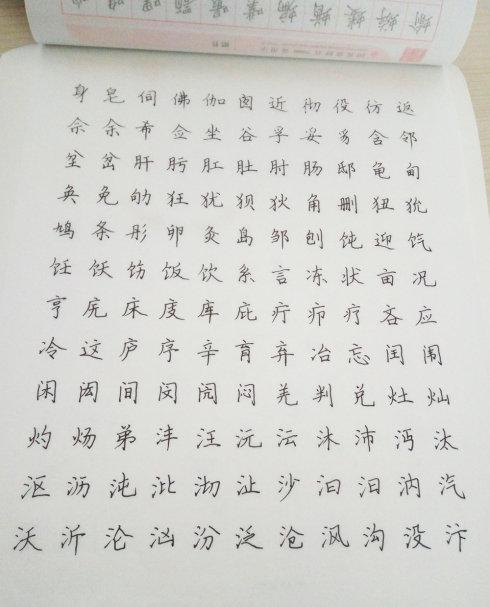 身皂伺佛伽囱近彻役彷返
佘余希佥坐谷孚妥豸含邻
坌岔肝肟肛肚肘肠邸龟甸
奂免劬狂犹狈狄角删狃狁
鸠条彤卵灸岛邹刨饨迎饩
饪饫饬饭饮系言冻状亩况
亨庑床庋库庇疔疖疗吝应
冷这庐序辛育弃冶忘闰闱
闲闳间闵闶闷羌判兑灶灿
灼炀弟沣汪沅沄沐沛沔汰
沤沥沌沘沏沚沙汩汨汭汽
沃沂沦汹汾泛沧沨沟没汴